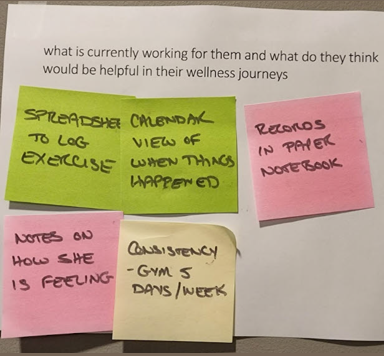 what is currently working for them and what do they think
would be helpful in their wellness journeys
SPREADSHEE
TO LOG
EXERCISE
CALENDAR
VIEW OF
WHEN THINGS
HAPPENED
RECORDS
IN PAPER
NOTEBOOK
NOTES ON
HOW SHE
IS FEELING
CONSISTENCY
- GYM 5
DAYS/WEEK